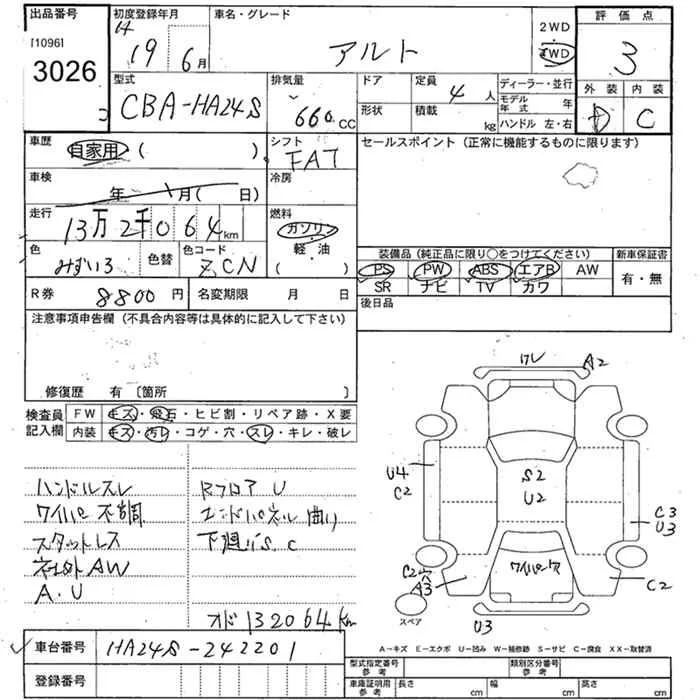 出品番号
[1096]
3026
初度登録年月
H
19 年 6 月
車名・グレード
アルト
2WD
4WD
評価点
3
外装 内装
D C
型式
CBA-HA24S
排気量
660 CC
ドア
形状
定員
4 人
積載
kg
ディーラー・並行
モデル年式 年
ハンドル 左・右
車歴
自家用 ( )
シフト
FAT
セールスポイント (正常に機能するものに限ります)
車検
年 月( 日)
冷房
走行
13万2千064km
燃料
ガソリン
軽・油
( )
色
みずいろ
色替
色コード
ZCN
装備品(純正品に限り〇をつけてください)
新車保証書
PS PW ABS エアB AW
SR ナビ TV カワ
有・無
R券
8800 円
名変期限 月 日
後日品
注意事項申告欄(不具合内容等は具体的に記入して下さい)
修復歴 有〔箇所 〕
検査員
記入欄
FW キズ・飛石・ヒビ割・リペア跡・X要
内装 キズ・汚レ・コゲ・穴・スレ・キレ・破レ
ハンドルスレ
ワイパー不調
スタットレス
社外AW
A・U
Rフロア U
エンドパネル曲り
下廻りS.C
オド132064km
ワレ A2
U4
C2
S2
U2
C3
U3
C2穴
A3
ワイパーケア
C2
U3
スペア
A-キズ E-エクボ U-凹み W-補修跡 S-サビ C-腐食 XX-取替済
車台番号
HA24S-242201
登録番号
型式指定番号
参考
類別区分番号
参考
車庫証明用
参考
長さ cm 幅 cm 高さ cm